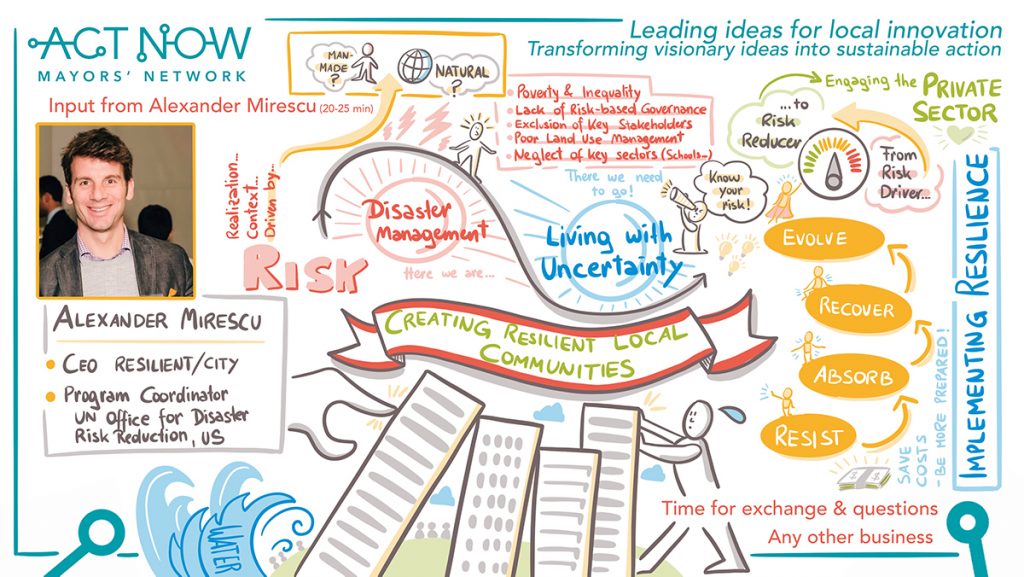 ACT NOW
MAYORS' NETWORK
Leading ideas for local innovation
Transforming visionary ideas into sustainable action
Input from Alexander Mirescu (20-25 min)
MAN-
MADE
?
NATURAL
?
• Poverty & Inequality
• Lack of Risk-based Governance
• Exclusion of Key Stakeholders
• Poor Land Use Management
• Neglect of key sectors (Schools...)
Engaging the PRIVATE
SECTOR
...to
Risk
Reducer
From
Risk
Driver...
Realization...
Context...
Driven by...
RISK
Disaster
Management
Here we are...
There we need
to go!
Living with
Uncertainty
Know
your
risk!
EVOLVE
RECOVER
ABSORB
RESIST
SAVE
COSTS
- BE MORE PREPARED!
IMPLEMENTING RESILIENCE
ALEXANDER MIRESCU
• CEO RESILIENT/CITY
• Program Coordinator
UN Office for Disaster
Risk Reduction, US
CREATING RESILIENT LOCAL
COMMUNITIES
WATER
Time for exchange & questions
Any other business